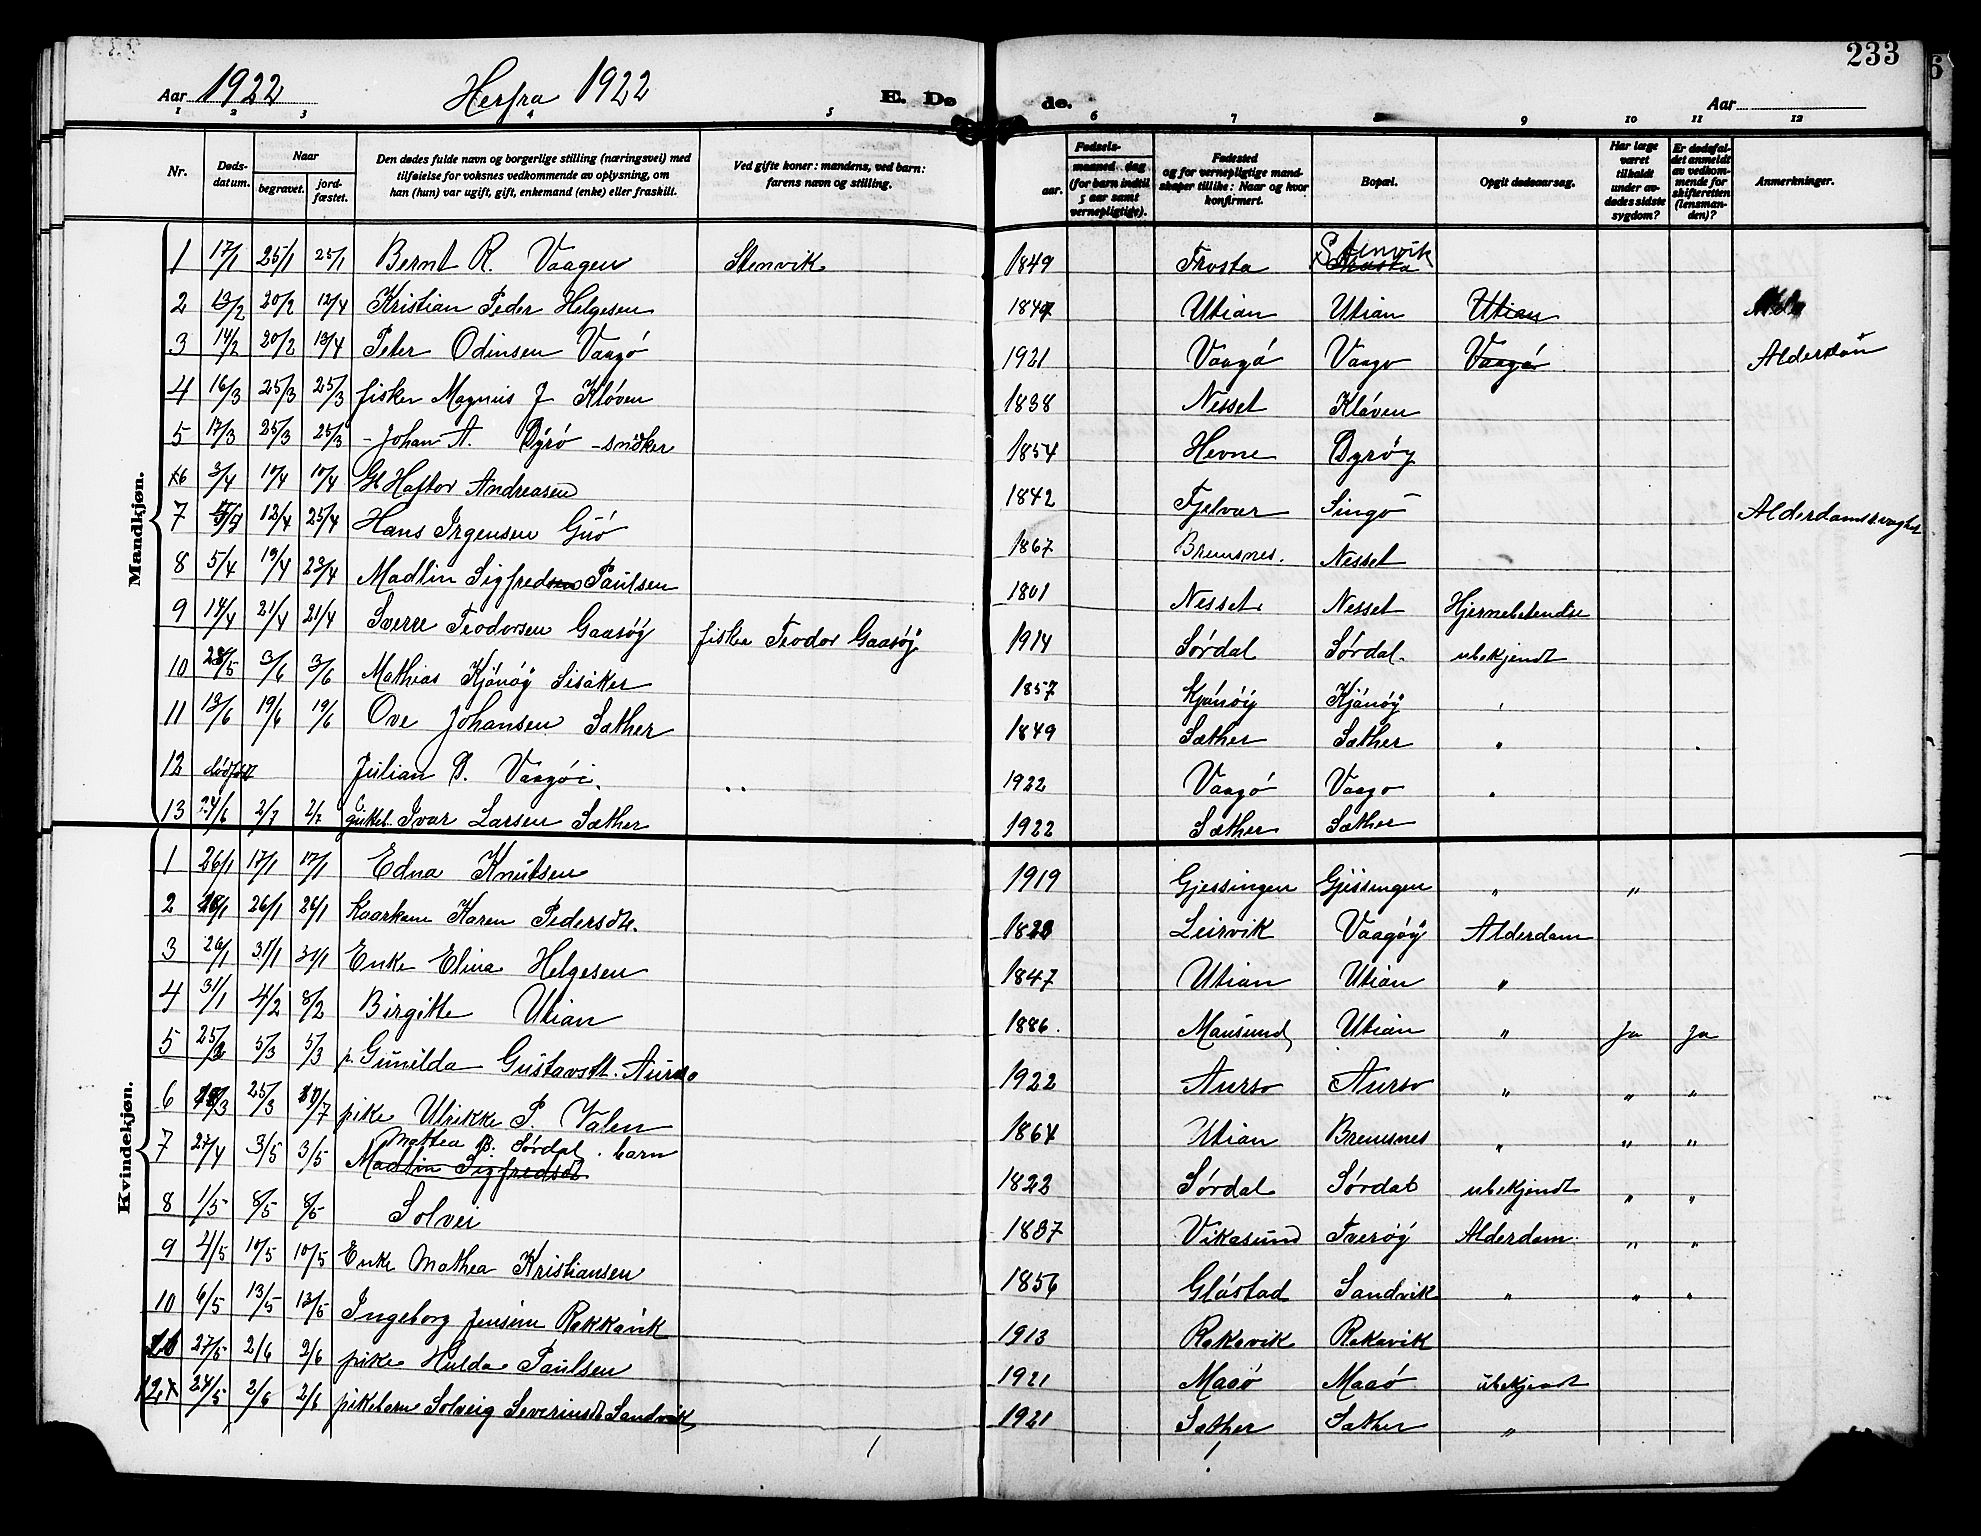 233
Aar 1922 Herfra 1922 E. Dø de. Aar
1 2 3 4 5 6 7 8 9 10 11 12
Nr. Døds-datum. Naar begravet. jord-fæstet. Den dødes fulde navn og borgerlige stilling (næringsvei) med tilføielse for voksnes vedkommende av oplysning, om han (hun) var ugift, gift, enkemand (enke) eller fraskilt. Ved gifte koner: mandens, ved barn: farens navn og stilling. Fødsels- aar. maaned. dag (for barn indtil 5 aar samt vernepligtige). Fødested og for vernepligtige mandskaper tillike: Naar og hvor konfirmert. Bopæl. Opgit dødsaarsag. Har læge været tilkaldt under avdødes sidste sygdom? Er dødsfaldet anmeldt av vedkommende for skifteretten (lensmanden)? Anmerkninger.
Mandkjøn.
1 17/1 25/1 25/1 Bernt R. Vaagen Stenvik 1849 Frosta Stenvik
2 13/2 20/2 12/4 Kristian Peder Helgesen 1847 Utian Utian Utian
3 14/2 20/2 13/4 Peter Odinsen Vaagö 1921 Vaagö Vaagö Vaagö Alderdöm
4 16/3 25/3 25/3 fisker Magnus J Klöven 1838 Nesset Klöven
5 17/3 25/3 25/3 - Johan A. Dyrö - snidker 1854 Hevne Dyröy
x6 3/4 10/4 10/4 Haftor Andreasen 1842 Fjelvær Singö
7 12/4 25/4 Hans Irgensen Guö 1867 Bremsnes. Nesset Alderdamssvaghet
8 5/4 19/4 23/4 Madlin Sigfredsen Paulsen 1801 Nesset Nesset Hjernebetendse
9 14/4 21/4 21/4 Sverre Teodorsen Gaasöy fisker Teodor Gaasöy 1914 Sördal Sördal. ubekjendt
10 28/5 3/6 3/6 Mathias Kjönöy Sisåker 1857 Kjönöy Kjönöy "
11 13/6 19/6 19/6 Ove Johansen Sæther 1849 Sæther Sæther "
12 dödföd Julian D. Vaagöi. " 1922 Vaagö Vaagö "
13 24/6 2/7 2/7 Ivar Larsen Sæther 1922 Sæther Sæther
Kvindekjøn.
1 26/1 17/1 17/1 Edna Knutsen 1919 Gjessingen Gjessingen " "
2 26/1 26/1 Kaarkone Karen Pedersdt. Leirvik Vaagöy Alderdom
3 26/1 31/1 31/1 Enke Elina Helgesen 1847 Utian Utian "
4 31/1 4/2 8/2 Birgitte Utian 1886. Mausund Utian " Ja Ja
5 5/3 5/3 p. Gunilda Gustavsdt. Aursö 1922 Aursö Aursö " " "
6 25/3 pike Ulrikke P. Valen 1864 Utian Bremsnes " " "
7 27/4 3/5 3/5 Mattea B. Sördal. barn Madlin Sigfredsdt 1822 Sördal Sördal ubekjendt " "
8 1/5 8/5 8/5 Solvei 1837 Vikasund Tveröy Alderdom " "
9 4/5 10/5 10/5 Enke Mathea Kristiansen 1856 Glöstad Sandvik " " "
10 6/5 13/5 13/5 Ingeborg Jensine Rokkavik 1913 Rokavik Rokavik
11 27/5 2/6 2/6 pike Hulda Paulsen 1921 Maaö Maaö ubekjendt
12x 24/5 2/6 2/6 pikebarn Solveig Severinsdt Sandvik 1921 Sæther Sæther "